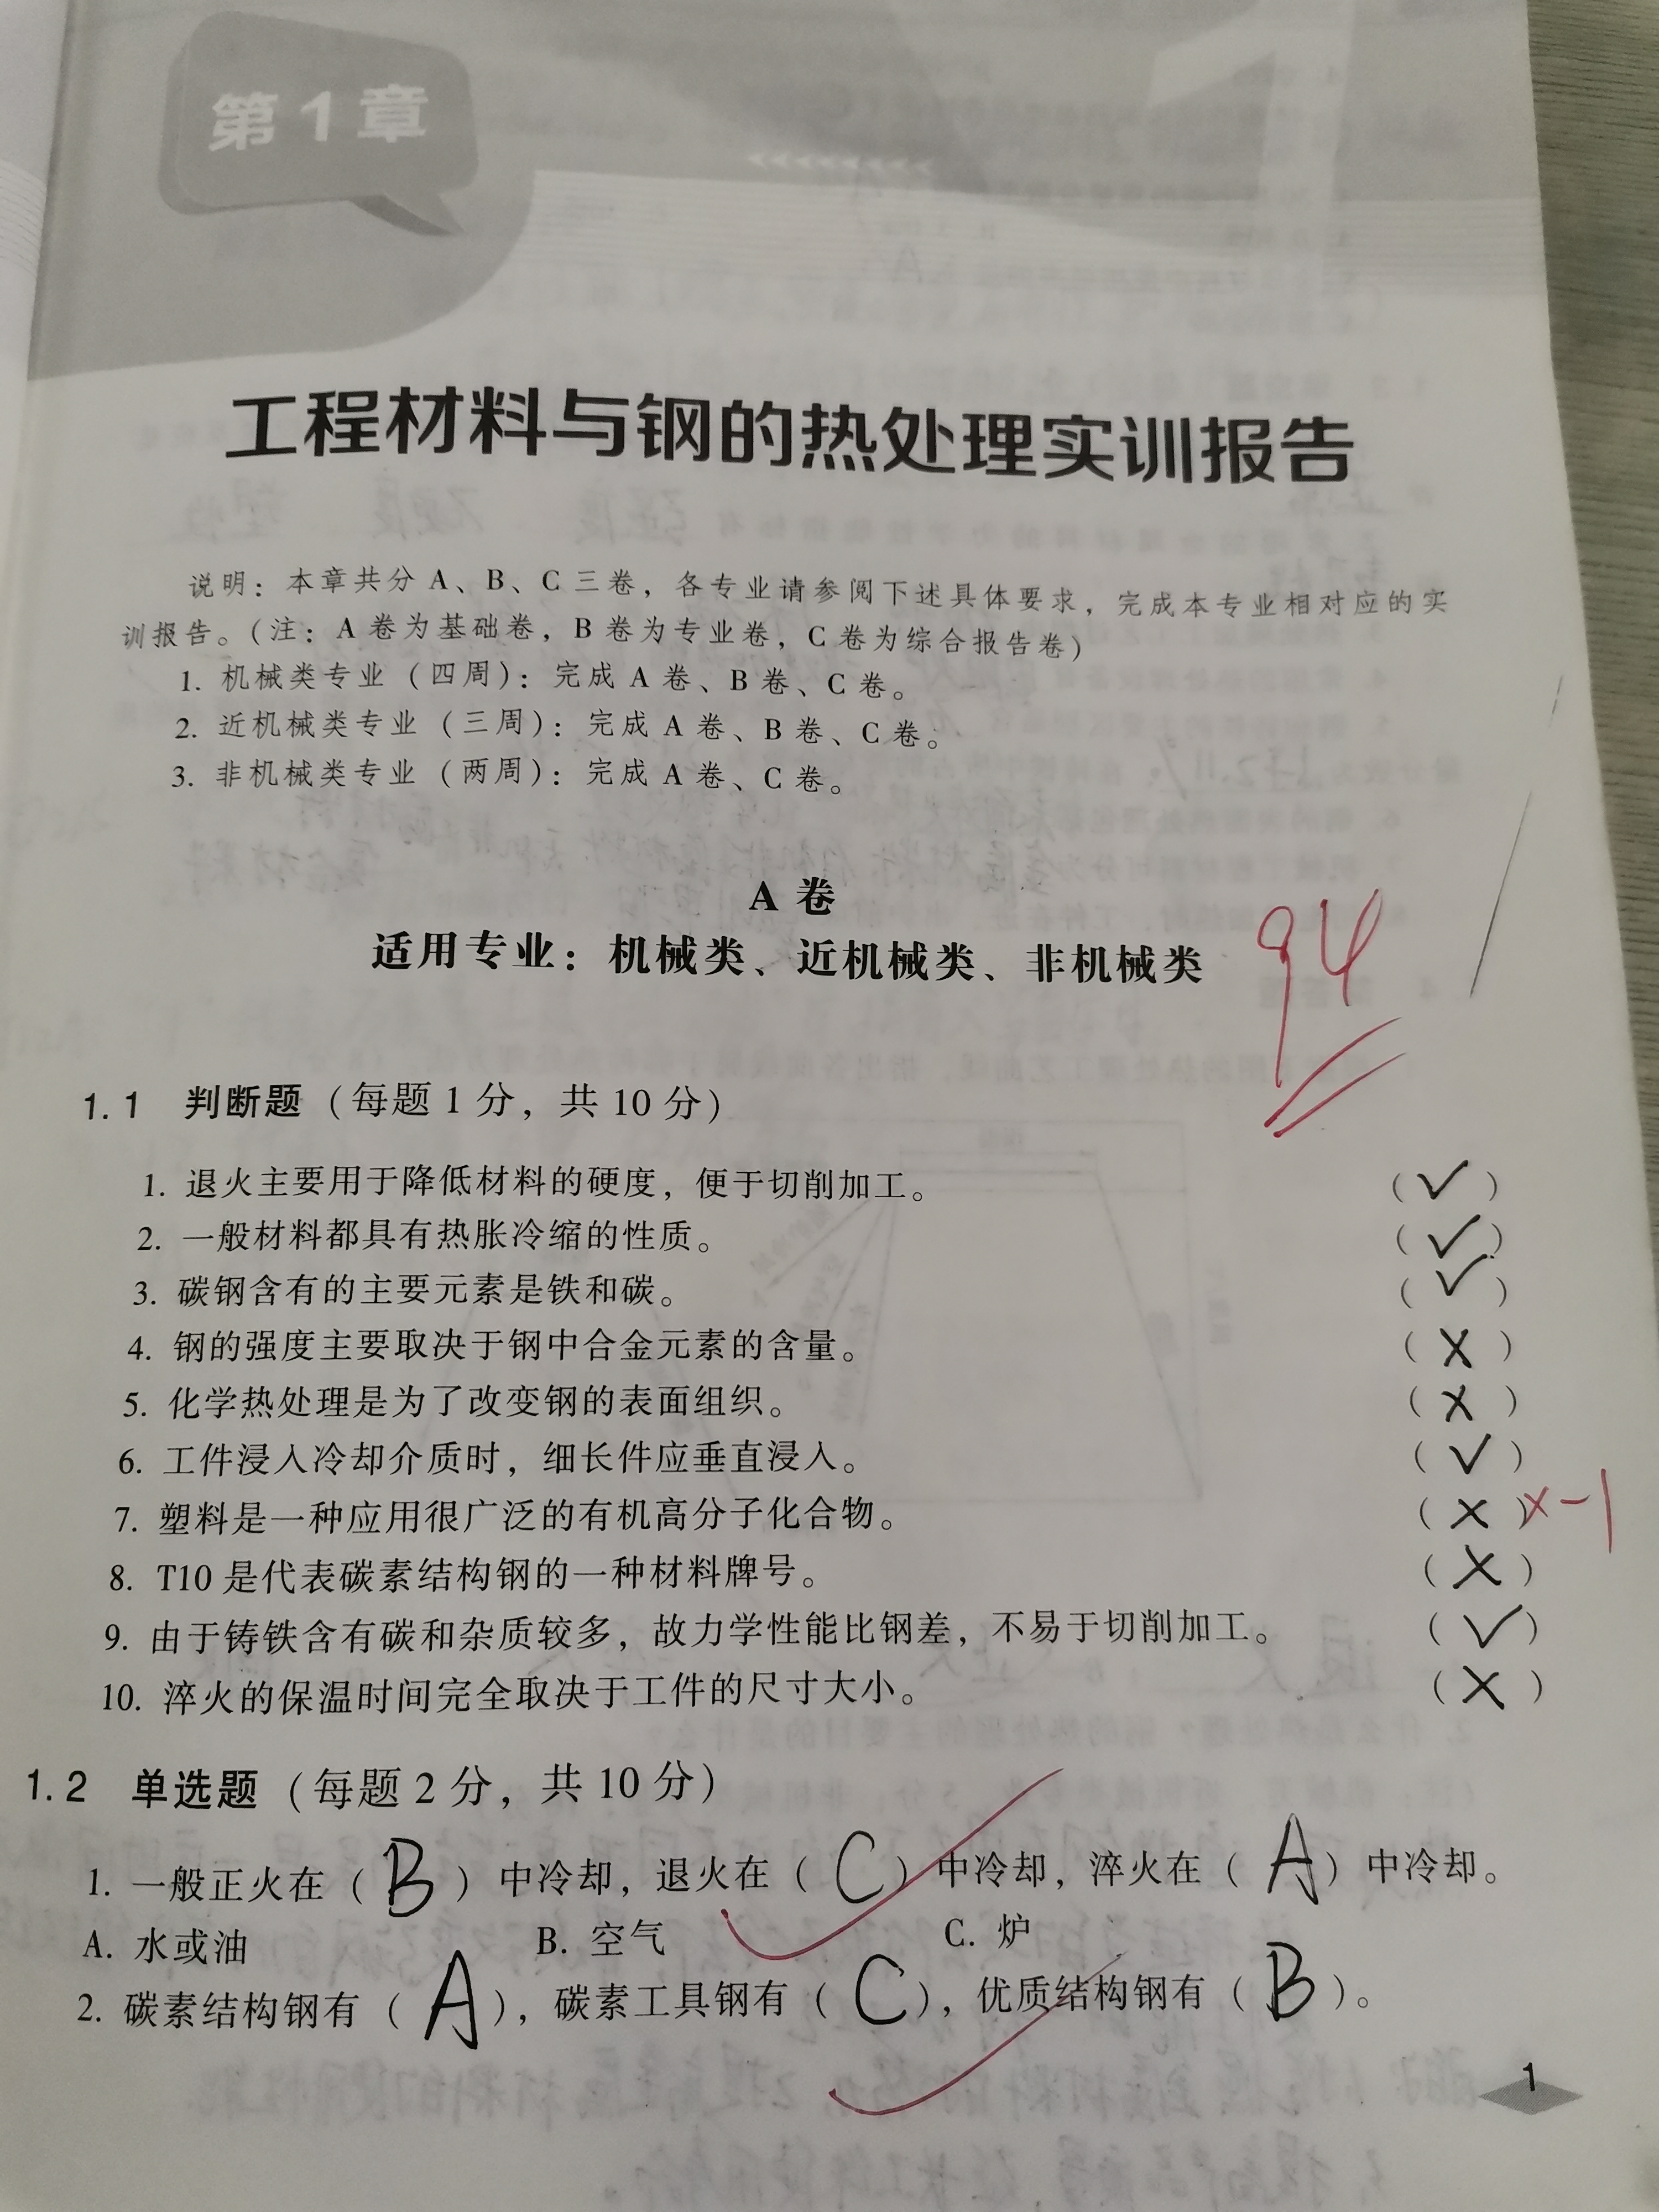 第1章
1
工程材料与钢的热处理实训报告
说明：本章共分 A、B、C 三卷，各专业请参阅下述具体要求，完成本专业相对应的实
训报告。(注：A 卷为基础卷，B 卷为专业卷，C 卷为综合报告卷)
1. 机械类专业（四周）：完成 A 卷、B 卷、C 卷。
2. 近机械类专业（三周）：完成 A 卷、B 卷、C 卷。
3. 非机械类专业（两周）：完成 A 卷、C 卷。
A 卷
适用专业：机械类、近机械类、非机械类
94
1.1 判断题（每题 1 分，共 10 分）
1. 退火主要用于降低材料的硬度，便于切削加工。（✓）
2. 一般材料都具有热胀冷缩的性质。（✓）
3. 碳钢含有的主要元素是铁和碳。（✓）
4. 钢的强度主要取决于钢中合金元素的含量。（×）
5. 化学热处理是为了改变钢的表面组织。（×）
6. 工件浸入冷却介质时，细长件应垂直浸入。（✓）
7. 塑料是一种应用很广泛的有机高分子化合物。（×）×-1
8. T10 是代表碳素结构钢的一种材料牌号。（×）
9. 由于铸铁含有碳和杂质较多，故力学性能比钢差，不易于切削加工。（✓）
10. 淬火的保温时间完全取决于工件的尺寸大小。（×）
1.2 单选题（每题 2 分，共 10 分）
1. 一般正火在（B）中冷却，退火在（C）中冷却，淬火在（A）中冷却。
A. 水或油 B. 空气 C. 炉
2. 碳素结构钢有（A），碳素工具钢有（C），优质结构钢有（B）。
1